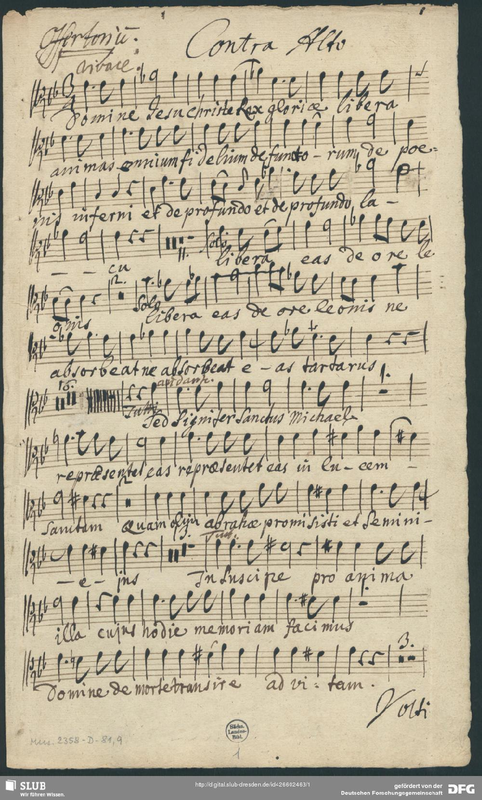 Offertoriū. Contra Alto
vivace
Domine Jesu Christe Rex gloriæ libera
animas omnium fidelium defuncto - rum de poe=
nis inferni et de profundo et de profundo, la -
- - cu
11. Solo
libera eas de ore le
2. Solo
onis libera eas de ore leonis ne
absorbeat ne absorbeat e - as tartarus
16. andante
Tutti
Sed Signifer Sanctus Michael
repræsentet eas repræsentet eas in lu - cem -
Sanctam Quam olim abrahæ promisisti et Semini -
- e - jus Tu Suscipe pro anima
illa cujus hodie memoriam facimus
3.
Domine de morte transire ad vi - tam.
Volti
Mus. 2358-D-81,9
Sächs. Landes-Bibl.
1
SLUB
Wir führen Wissen.
http://digital.slub-dresden.de/id426602483/1
gefördert von der
Deutschen Forschungsgemeinschaft
DFG